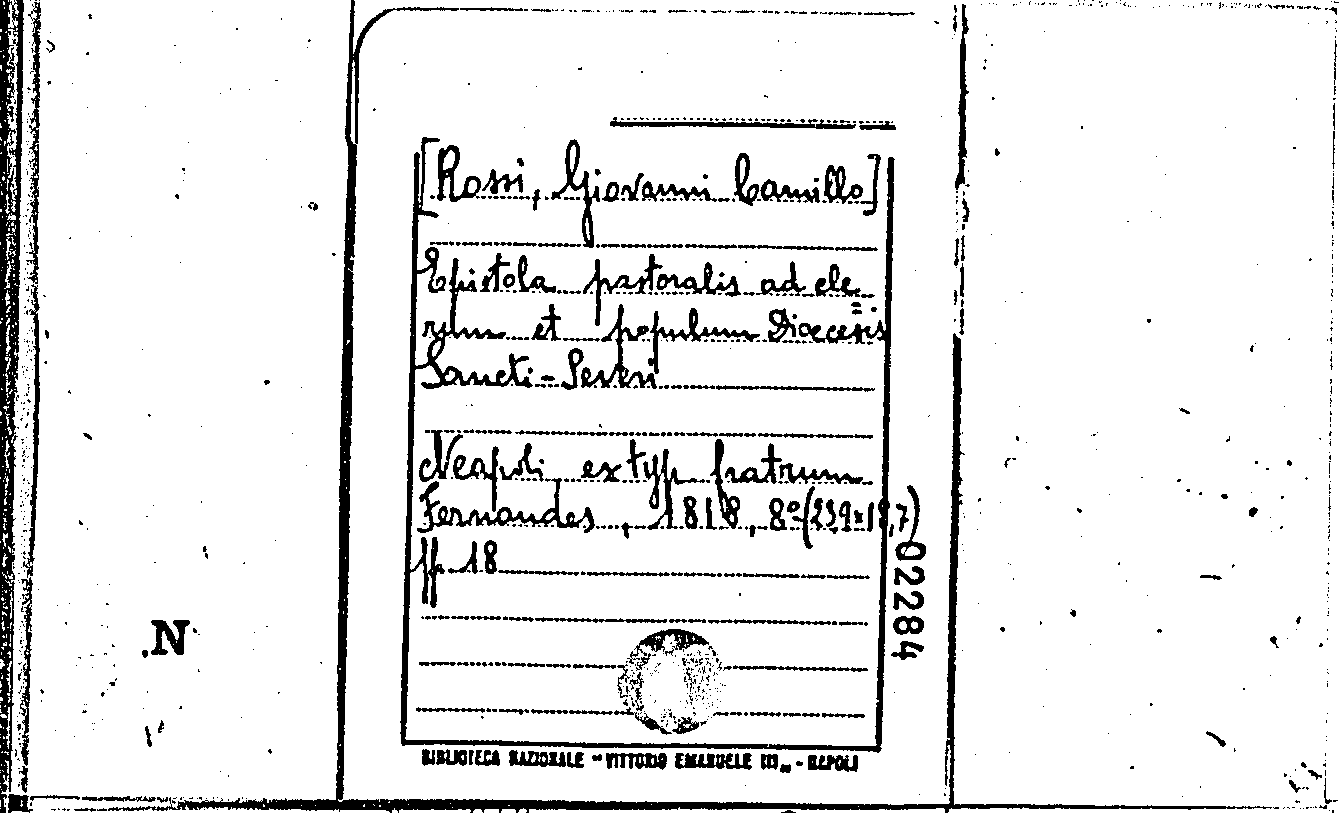 [Rossi, Giovanni Camillo]
Epistola pastoralis ad cle=
rum et populum Dioecesis
Sancti-Severi
Neapoli ex typ fratrum
Fernandes, 1818, 8º (23,9x18,7)
pp. 18
02284
.N
BIBLIOTECA NAZIONALE "VITTORIO EMANUELE III„ - NAPOLI